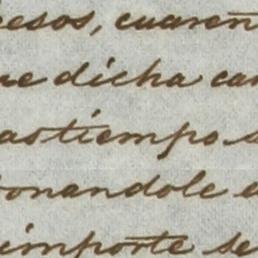 pesos, cuaren
ue dicha can
aotiempo s
onandole e
importe se